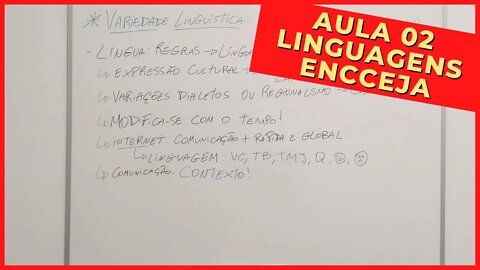 AULA 02
LINGUAGENS
ENCCEJA
* VARIEDADE LINGUÍSTICA
- LÍNGUA: REGRAS → LÍNGU
↳ EXPRESSÃO CULTURAL
↳ VARIAÇÕES DIALETOS OU REGIONALISMO
↳ MODIFICA-SE COM O TEMPO!
↳ INTERNET COMUNICAÇÃO + RÁPIDA E GLOBAL
↳ LINGUAGEM: VC, TB, TMJ, Q, ☺, ☹
↳ COMUNICAÇÃO. CONTEXTO!